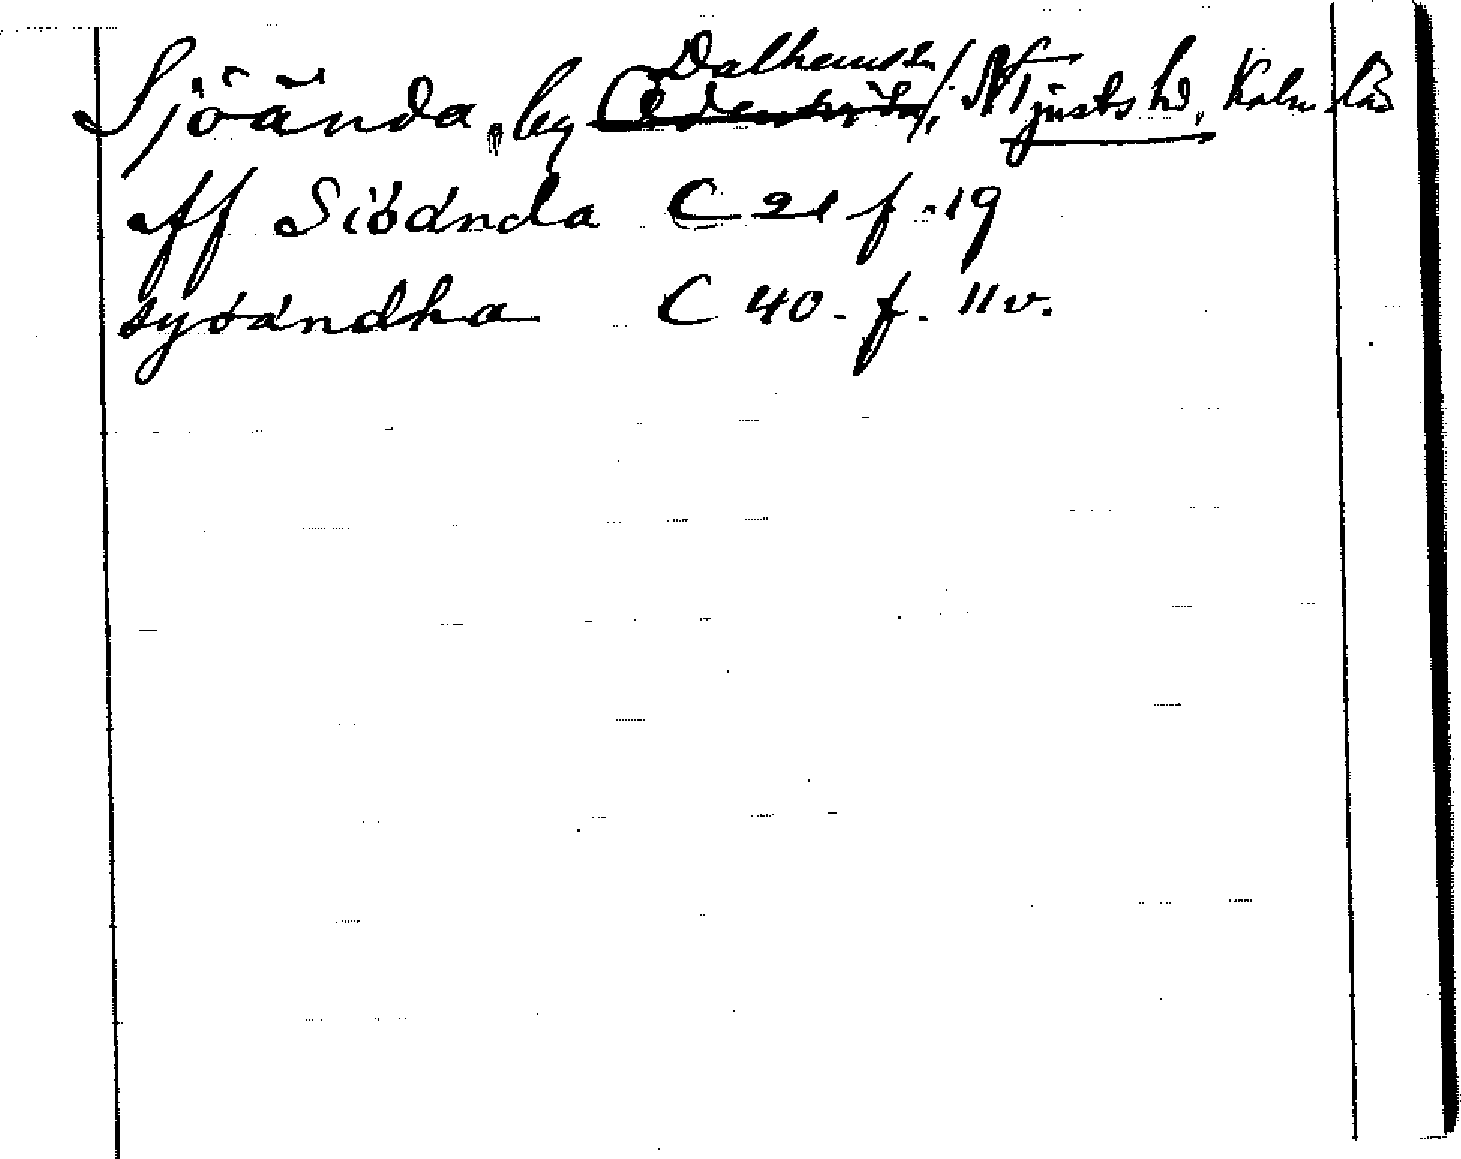 Sjöända, by Dalhems s:n, N Tjusts hd, Kalm län
aff Siöända C 21 f. 19
syöändha C 40. f. 11v.